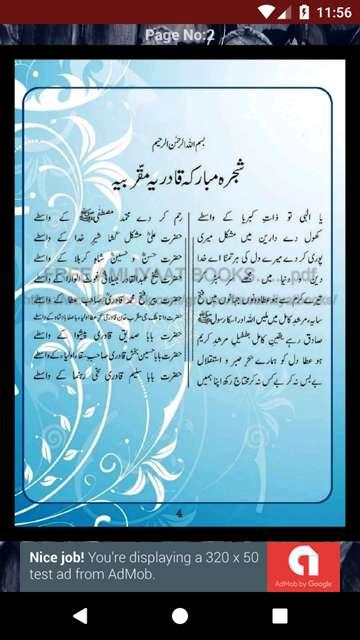 11:56
Page No:2
بسم اللہ الرحمٰن الرحیم
شجرہ مبارکہ قادریہ مقربیہ
یا الٰہی تو ذاتِ کبریا کے واسطے رحم کر دے محمد مصطفٰی ﷺ کے واسطے
کھول دے دارین میں مشکل میری حضرت علی مشکل کشا شیرِ خدا کے واسطے
پوری کر دے میرے دل کی ہر تمنا اے خدا حضرت حسن و حسین شاہِ کربلا کے واسطے
دین دنیا میں
تیرے کرم سے ہو عطا دونوں جہانوں میں فتح حضرت فتح محمد قادری صاحب کے واسطے
سایہ مرشد کامل میں ملیں اللہ اور اسکا رسول ﷺ
صادق رہے یقینِ کامل بطفیلِ مرشدِ کریم حضرت بابا صدیق قادری پیشوا کے واسطے
ہو عطا دل کو ہمارے بھی صبر و استقلال حضرت بابا حسین بخش قادری صاحب کے واسطے
بے بس نہ کر بے کس نہ کر محتاج رکھ اپنا ہمیں حضرت بابا سلیم قادری سخی رہنما کے واسطے
FREE AMLIYAAT BOOKS pdf
4
Nice job! You're displaying a 320 x 50
test ad from AdMob.
AdMob by Google